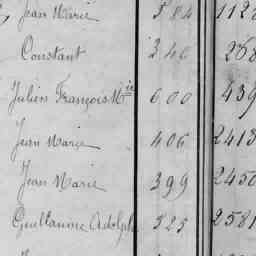 Jean Marie 584 112
Constant 340 258
Julien François Mie 600 439
Jean Marie 406 2418
Jean Marie 399 2450
Guillaume Adolphe 525 2581